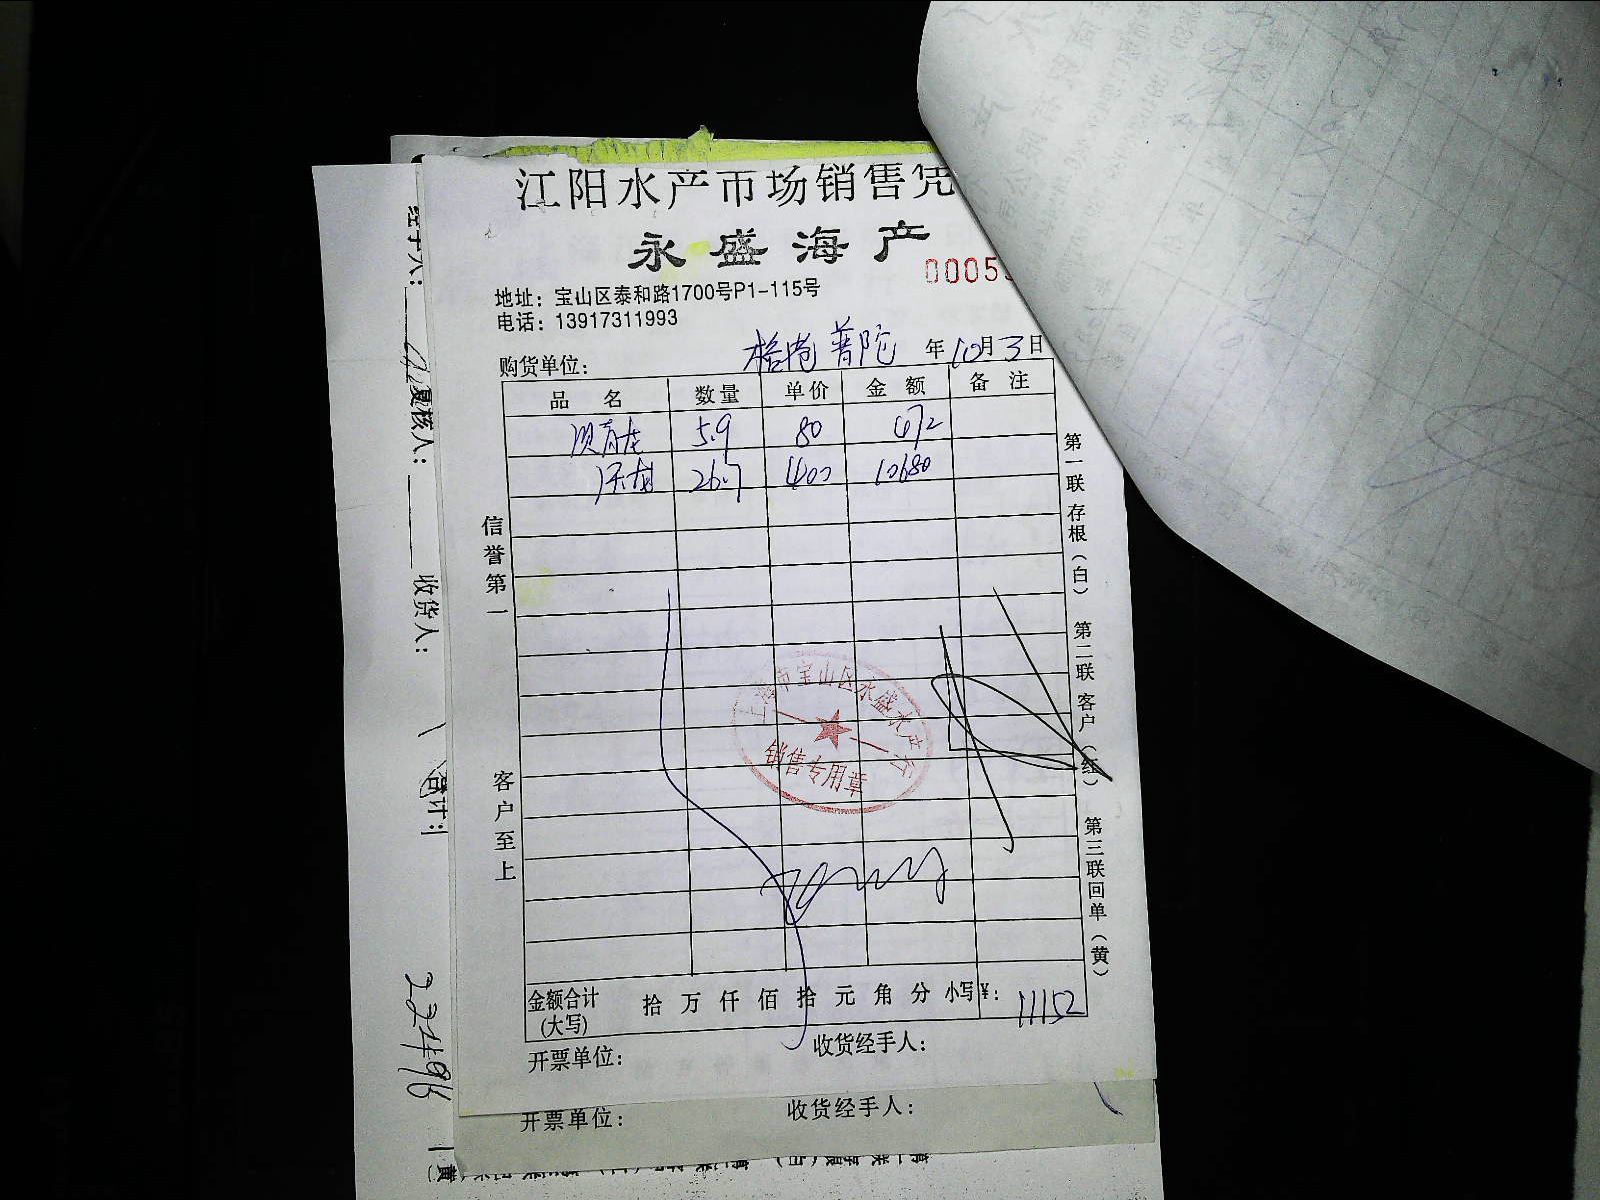 江阳水产市场销售凭
永盛海产
00055
地址：宝山区泰和路1700号P1-115号
电话：13917311993
购货单位： 普陀 年10月3日
品 名 数量 单价 金 额 备 注
5.9 80 472
26.7 400 10680
信誉第一
客户至上
第一联 存根（白） 第二联 客户（红） 第三联 回单（黄）
上海市宝山区永盛水产行
销售专用章
金额合计（大写） 拾 万 仟 佰 拾 元 角 分 小写¥： 11152
开票单位： 收货经手人：
开票单位： 收货经手人：
经手人： 复核人： 收货人：
合计：
22496